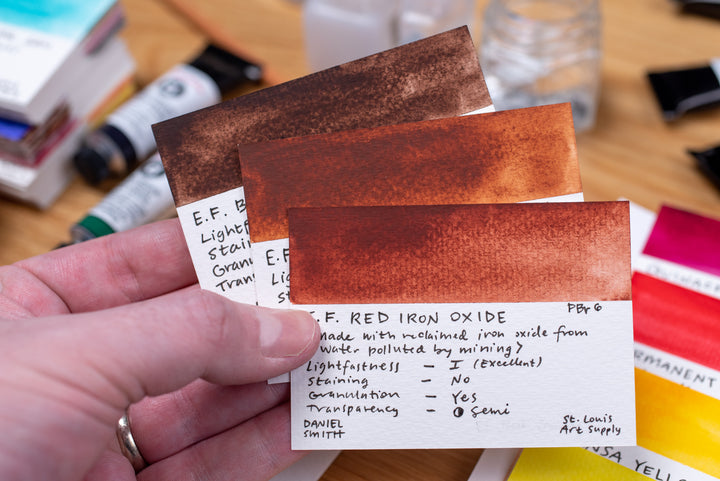 E.F. B
Lightf
Stai
Gran
Tran
E.F
Li
St
E.F. RED IRON OXIDE
PBr 6
made with reclaimed iron oxide from
water polluted by mining>
Lightfastness – I (Excellent)
Staining – No
Granulation – Yes
Transparency – ◑ Semi
DANIEL
SMITH
St. Louis
Art Supply
RMANENT
NSA YELLO